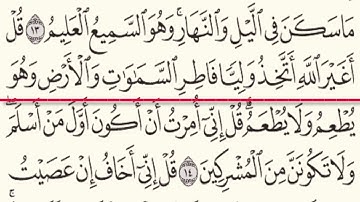 مَا سَكَنَ فِى ٱلَّيْلِ وَٱلنَّهَارِ ۚ وَهُوَ ٱلسَّمِيعُ ٱلْعَلِيمُ ١٣ قُلْ
أَغَيْرَ ٱللَّهِ أَتَّخِذُ وَلِيًّا فَاطِرِ ٱلسَّمَٰوَٰتِ وَٱلْأَرْضِ وَهُوَ
يُطْعِمُ وَلَا يُطْعَمُ ۗ قُلْ إِنِّىٓ أُمِرْتُ أَنْ أَكُونَ أَوَّلَ مَنْ أَسْلَمَ ۖ
وَلَا تَكُونَنَّ مِنَ ٱلْمُشْرِكِينَ ١٤ قُلْ إِنِّىٓ أَخَافُ إِنْ عَصَيْتُ